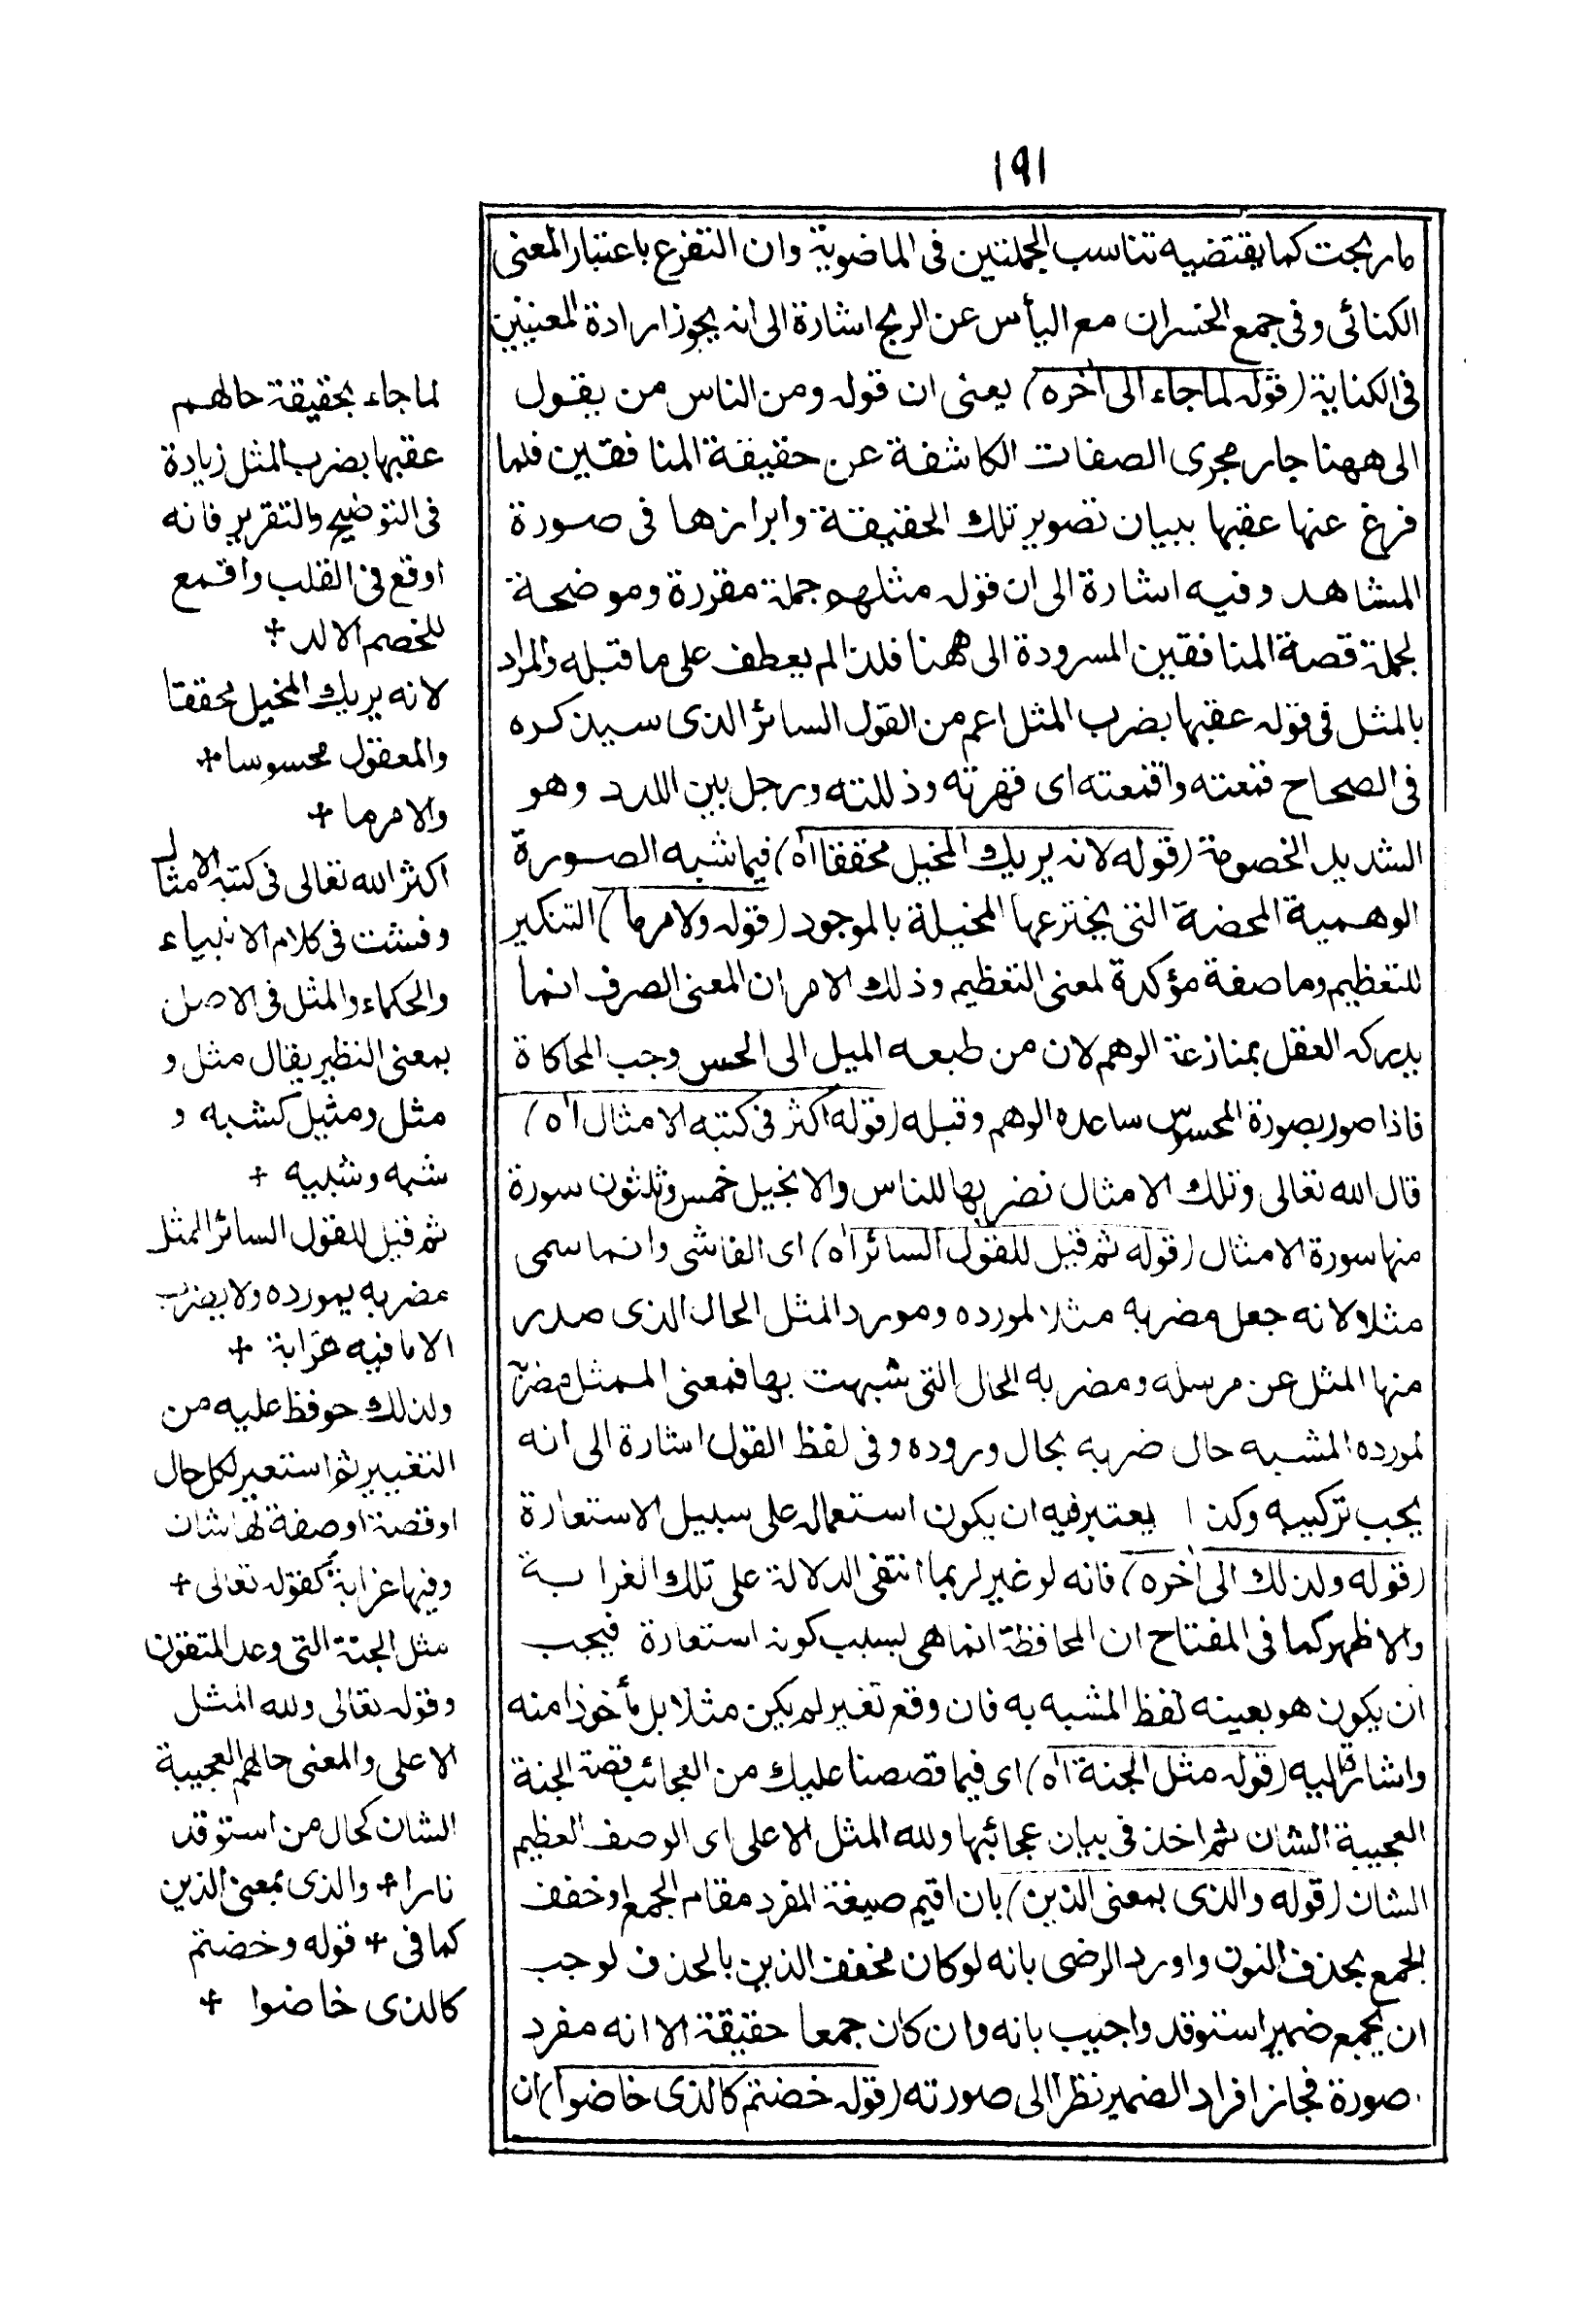 ١٩١
ما ربحت كما يقتضيه تناسب الجملتين فى الماضوية وان التفرع باعتبار المعنى
الكنائى وفى جمع الخسران مع اليأس عن الربح اشارة الى انه يجوز ارادة المعنيين
فى الكناية (قوله لما جاء الى اخره) يعنى ان قوله ومن الناس من يقول
الى ههنا جار مجرى الصفات الكاشفة عن حقيقة المنافقين فلما
فرغ عنها عقبها ببيان تصوير تلك الحقيقة وابرازها فى صورة
المشاهد وفيه اشارة الى ان قوله مثلهم جملة مقررة وموضحة
لجملة قصة المنافقين المسرودة الى ههنا فلذا لم يعطف على ما قبله والمراد
بالمثل فى قوله عقبها بضرب المثل اعم من القول السائر الذى سيذكره
فى الصحاح قمعته واقمعته اى قهرته وذللته ورجل بين اللدد وهو
الشديد الخصومة (قوله لانه يريك المخيل محققا اه) فيما شبه الصورة
الوهمية المحضة التى يخترعها المخيلة بالموجود (قوله ولامرما) التنكير
للتعظيم وما صفة مؤكدة لمعنى التعظيم وذلك الامر ان المعنى الصرف انما
يدركه العقل بمنازعة الوهم لان من طبعه الميل الى الحس وجب المحاكاة
فاذا صور بصورة المحسوس ساعده الوهم وقبله (قوله اكثر فى كتبه الامثال اه)
قال الله تعالى وتلك الامثال نضربها للناس والانجيل خمس وثلثون سورة
منها سورة الامثال (قوله ثم قيل للقول السائر اه) اى الفاشى وانما سمى
مثلا لانه جعل مضربه مثلا لمورده ومورد المثل الحال الذى صدر
منها المثل عن مرسله ومضربه الحال التى شبهت بها فمعنى الممثل مضربه
لمورده المشبه حال ضربه بحال وروده وفى لفظ القول اشارة الى انه
يجب تركيبه وكذا يعتبر فيه ان يكون استعماله على سبيل الاستعارة
(قوله ولذلك الى اخره) فانه لو غير لربما انتفى الدلالة على تلك الغرابة
والاظهر كما فى المفتاح ان المحافظة انما هى بسبب كونه استعارة فيجب
ان يكون هو بعينه لفظ المشبه به فان وقع تغير لم يكن مثلا بل مأخوذا منه
واشارة اليه (قوله مثل الجنة اه) اى فيما قصصنا عليك من العجائب قصة الجنة
العجيبة الشان ثم اخذ فى بيان عجائبها ولله المثل الاعلى اى الوصف العظيم
الشان (قوله والذى بمعنى الذين) بان اقيم صيغة المفرد مقام الجمع او خفف
الجمع بحذف النون واورد الرضى بانه لو كان مخفف الذين بالحذف لوجب
ان يجمع ضمير استوقد واجيب بانه وان كان جمعا حقيقة الا انه مفرد
صورة فجاز افراد الضمير نظرا الى صورته (قوله خضتم كالذى خاضوا) ان
لما جاء بحقيقة حالهم
عقبها بضرب المثل زيادة
فى التوضيح والتقرير فانه
اوقع فى القلب واقمع
للخصم الالد +
لانه يريك المخيل محققا
والمعقول محسوسا +
ولامرما +
اكثر الله تعالى فى كتبه الامثال
وفشت فى كلام الانبياء
والحكماء والمثل فى الاصل
بمعنى النظير يقال مثل و
مثل ومثيل كشبه و
شبه وشبيه +
ثم قيل للقول السائر الممثل
مضربه بمورده ولا يضرب
الا ما فيه غرابة +
ولذلك حوفظ عليه من
التغيير ثم استعير لكل حال
او قصة او صفة لها شان
وفيها غرابة كقوله تعالى +
مثل الجنة التى وعد المتقون
وقوله تعالى ولله المثل
الاعلى والمعنى حالهم العجيبة
الشان كحال من استوقد
نارا + والذى بمعنى الذين
كما فى + قوله وخضتم
كالذى خاضوا +